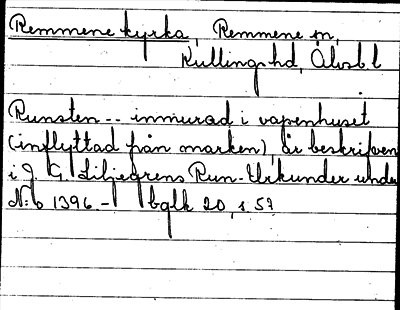 Remmene kyrka, Remmene sn,
Kullings hd, Älvsb. l
Runsten -- inmurad i vapenhuset
(inflyttad från marken), är beskrifven
i J. G. Liljegrens Run-Urkunder under
N:o 1396.- bglk 20, s 57